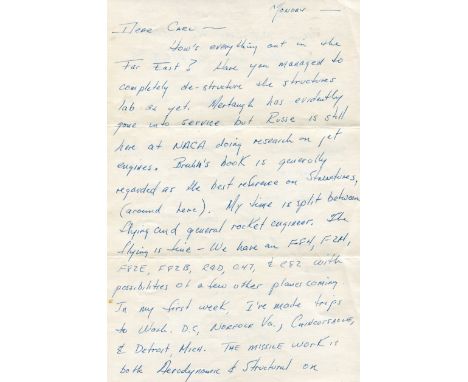 Monday —
Dear Carl —
How's everything out in the
Far East? Have you managed to
completely de-structure the structures
lab as yet. has evidently
gone into service but Russ is still
here at NACA doing research on jet
engines. Bruhn's book is generally
regarded as the best reference on Structures,
(around here). My time is split between
flying and general rocket engineer. The
flying is fine — We have an F8F, F2H,
F82E, F82B, R4D, C47, & with
possibilities of a few other planes coming
In my first week, I've made trips
to Wash. D.C, Norfolk Va., Chincoteague,
& Detroit, Mich. The missile work is
both Aerodynamic & Structural on